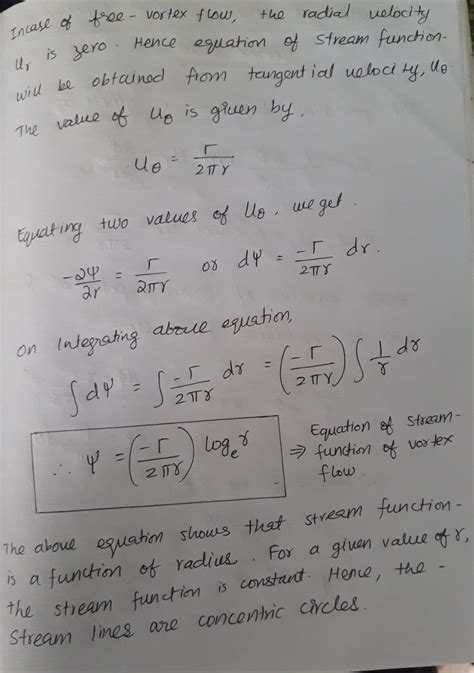 Incase of free - vortex flow, the radial velocity
u_r is zero. Hence equation of stream function-
will be obtained from tangential velocity, u_θ
The value of u_θ is given by,
u_θ = Γ/2πr
Equating two values of u_θ, we get.
-∂ψ/∂r = Γ/2πr or dψ = -Γ/2πr dr.
On Integrating above equation,
∫dψ = ∫ -Γ/2πr dr = (-Γ/2πr) ∫ 1/r dr
∴ ψ = (-Γ/2πr) log_e r ⇒ Equation of stream-
function of vortex
flow.
The above equation shows that stream function-
is a function of radius. For a given value of r,
the stream function is constant. Hence, the -
Stream lines are concentric circles.